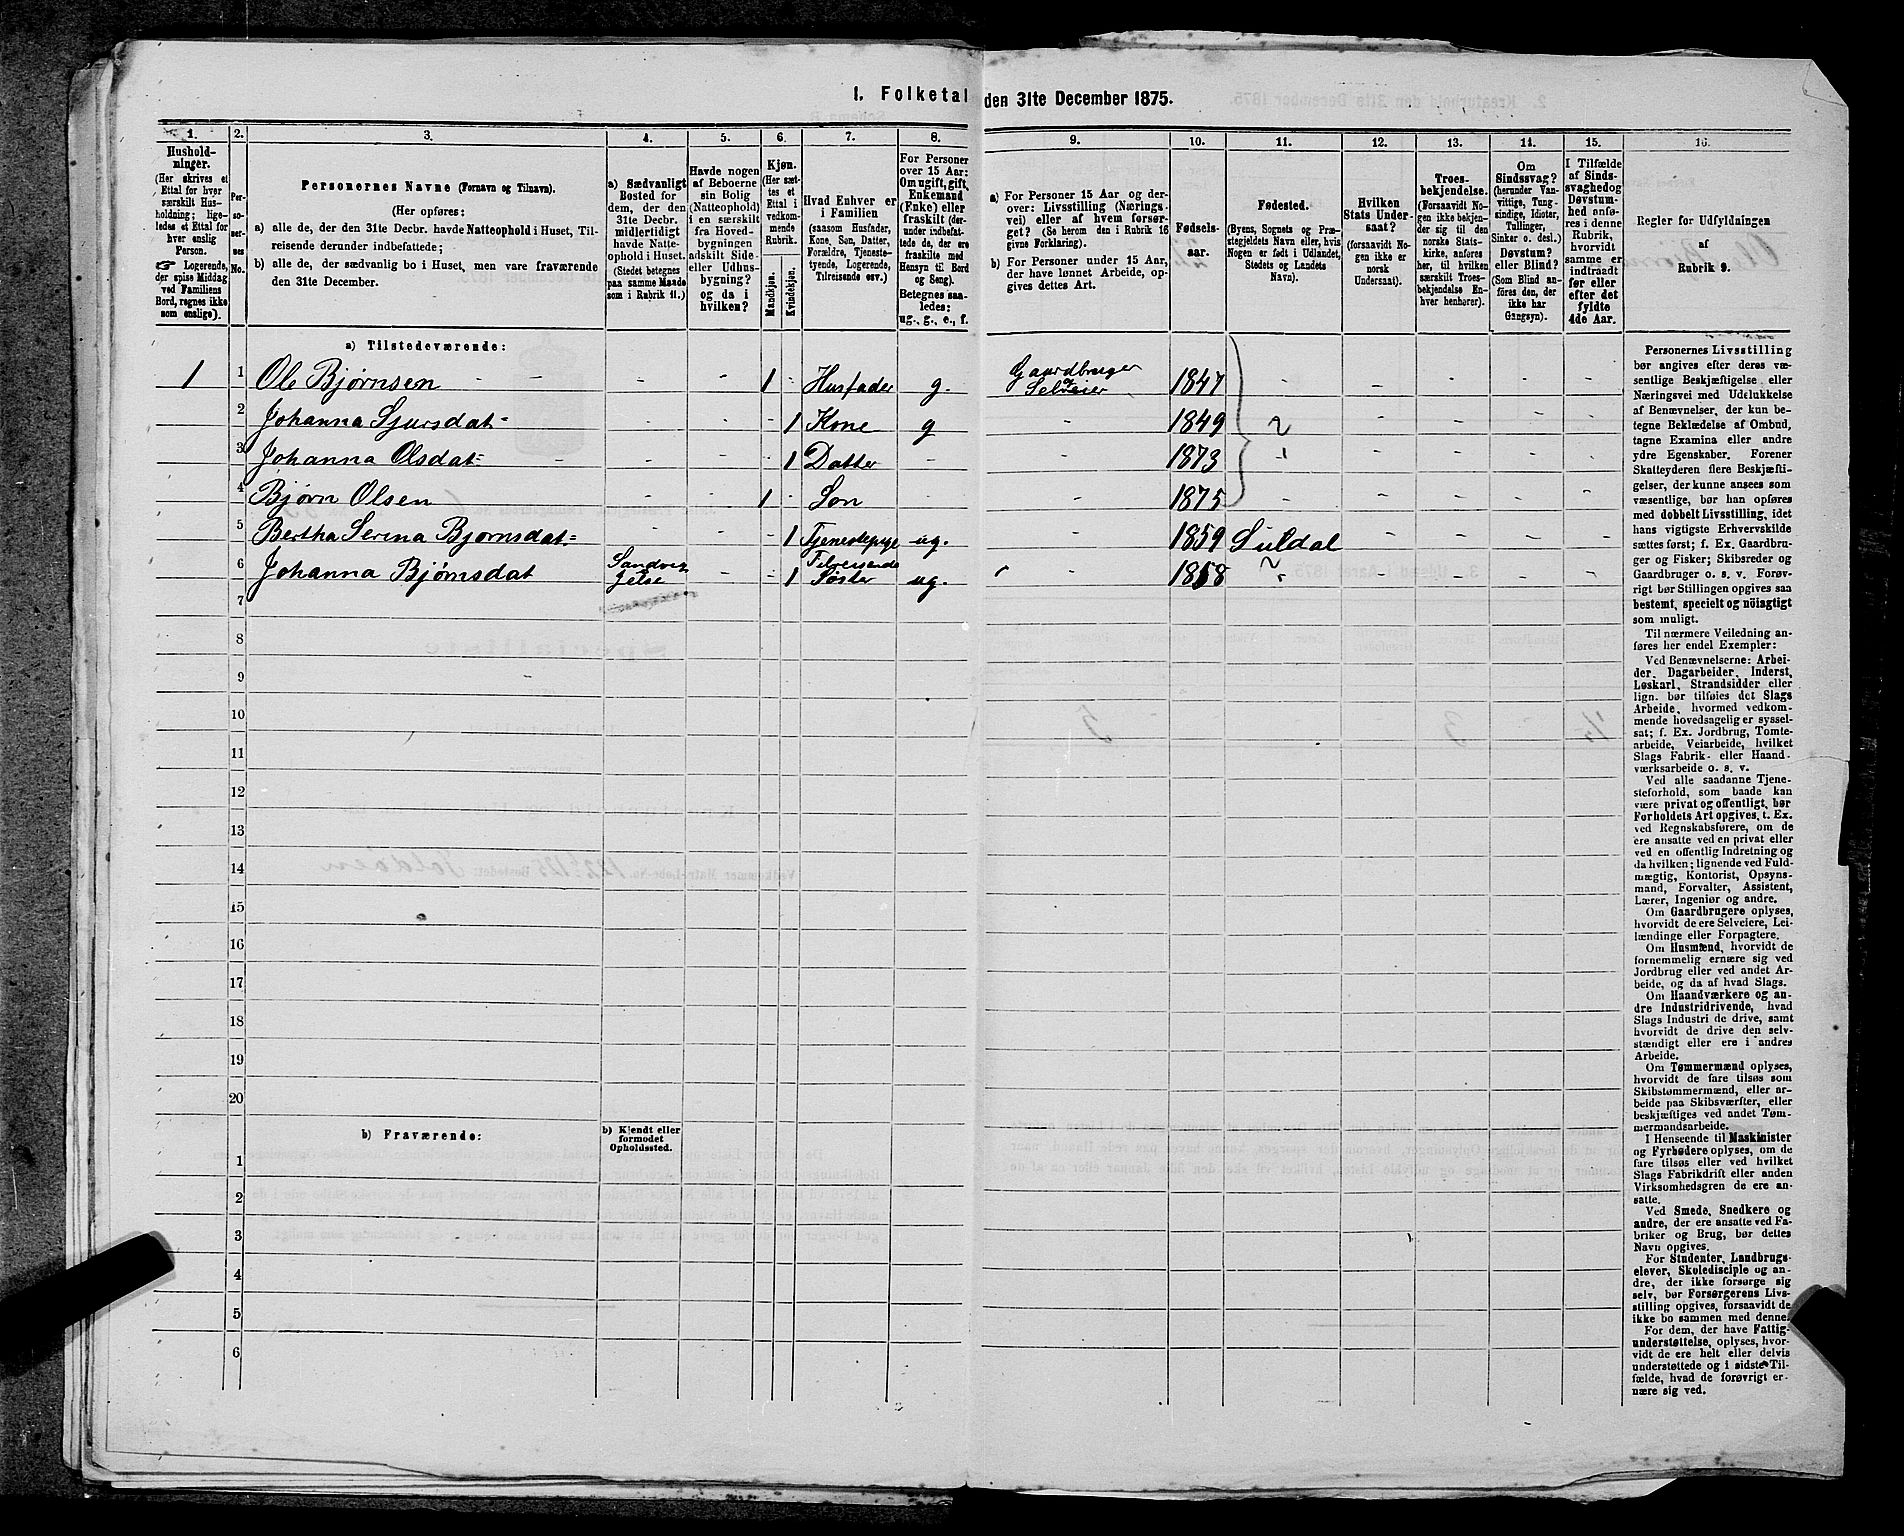 1. Folketal den 31te December 1875.
1.
Husholdninger.
(Her skrives et
Ettal for hver
særskilt Husholdning; ligeledes
et Ettal for
hver enslig
Person.
Logerende,
der spise Middag
ved Familiens
Bord, regnes ikke
som enslige).
2.
Personernes
No.
3.
Personernes Navne (Fornavn og Tilnavn).
(Her opføres:
a) alle de, der den 31te Decbr. havde Natteophold i Huset, Tilreisende
derunder indbefattede;
b) alle de, der sædvanlig bo i Huset, men vare fraværende
den 31te December.
4.
a) Sædvanligt
Bosted for
dem, der den
31te Decbr.
midlertidigt
havde Natteophold
i Huset.
(Stedet betegnes
paa samme Maade
som i Rubrik 11.)
5.
Havde nogen
af Beboerne
sin Bolig
(Natteophold)
i en særskilt
fra Hovedbygningen
adskilt Sideeller
Udhusbygning?
og da i
hvilken?
6.
Kjøn.
(Her sættes
et
Ettal i
vedkommende
Rubrik.
Mandkjøn.
Kvindekjøn.
7.
Hvad Enhver er
i Familien
(saasom Husfader,
Kone, Søn, Datter,
Forældre, Tjenestetyende,
Logerende,
Tilreisende osv.)
8.
For Personer
over 15 Aar:
Om ugift, gift,
Enkemand
(Enke) eller
fraskilt (derunder
indbefattede
de, der ere
fraskilte med
Hensyn til Bord
og Seng).
Betegnes saaledes:
ug., g., e., f.
9.
a) For Personer 15 Aar og derover:
Livsstilling (Næringsvei)
eller af hvem forsørget?
(Se herom den i Rubrik 16
givne Forklaring).
b) For Personer under 15 Aar,
der have lønnet Arbeide, opgives
dettes Art.
10.
Fødselsaar.
11.
Fødested.
(Byens, Sognets og Præstegjeldets
Navn eller, hvis
Nogen er født i Udlandet,
Stedets og Landets
Navn).
12.
Hvilken
Stats Undersaat?
(forsaavidt Nogen
ikke er
norsk
Undersaat).
13.
Troesbekjendelse.
(Forsaavidt Nogen
ikke bekjender
sig til den
norske Statskirke,
anføres
her, til hvilken
særskilt Troesbekjendelse
Enhver
henhører).
14.
Om
Sindssvag?
(herunder Vanvittige,
Tungsindige,
Idioter,
Tullinger,
Sinker o. desl.)
Døvstum?
eller Blind?
(Som Blind anføres
den, der
ikke har
Gangsyn).
15.
I Tilfælde
af Sindssvaghed
og
Døvstumhed
anføres
i denne
Rubrik,
hvorvidt
samme er
indtraadt
før eller
efter det
fyldte
4de Aar.
16.
Regler for Udfyldningen
af
Rubrik 9.
a) Tilstedeværende:
1 1 Ole Bjørnsen - - - - 1 - Husfader g. Gaardbruger Selveier 1847 - - - - -
2 Johanna Sjursdat= - - - 1 Kone g - 1849 " - - - -
3 Johanna Olsdat= - - - 1 Datter - - 1873 " - - - -
4 Bjørn Olsen - - 1 - Søn - - 1875 - - - - -
5 Bertha Serina Bjørnsdat= - - - 1 Tjenestepige ug. - 1859 Suldal - - - -
6 Johanna Bjørnsdat Gelse - - 1 Tilreisende Søster ug. " 1858 " - - - -
7
8
9
10
11
12
13
14
15
16
17
18
19
20
b) Fraværende:
b) Kjendt eller
formodet
Opholdssted.
1
2
3
4
5
6
Personernes Livsstilling
bør angives efter deres væsentlige
Beskjæftigelse eller
Næringsvei med Udelukkelse
af Benævnelser, der kun betegne
Beklædelse af Ombud,
tagne Examina eller andre
ydre Egenskaber. Forener
Skatteyderen flere Beskjæftigelser,
der kunne ansees som
væsentlige, bør han opføres
med dobbelt Livsstilling, idet
hans vigtigste Erhvervskilde
sættes først; f. Ex. Gaardbruger
og Fisker; Skibsreder og
Gaardbruger o. s. v. Forøvrigt
bør Stillingen opgives saa
bestemt, specielt og nöiagtigt
som muligt.
Til nærmere Veiledning anføres
her endel Exempler:
Ved Benævnelserne: Arbeider,
Dagarbeider, Inderst,
Løskarl, Strandsidder eller
lign. bør tilføies det Slags
Arbeide, hvormed vedkommende
hovedsagelig er sysselsat;
f. Ex. Jordbrug, Tomtearbeide,
Veiarbeide, hvilket
Slags Fabrik- eller Haandværksarbeide
o. s. v.
Ved alle saadanne Tjenesteforhold,
som baade kan
være privat og offentligt, bør
Forholdets Art opgives, t. Ex.
ved Regnskabsførere, om de
ere ansatte ved en privat eller
ved en offentlig Indretning og
da hvilken; lignende ved Fuldmægtig,
Kontorist, Opsynsmand,
Forvalter, Assistent,
Lærer, Ingeniør og andre.
Om Gaardbrugere oplyses,
hvorvidt de ere Selveiere, Leilændinge
eller Forpagtere.
Om Husmænd, hvorvidt de
fornemmelig ernære sig ved
Jordbrug eller ved andet Arbeide,
og da af hvad Slags.
Om Haandværkere og andre
Industridrivende, hvad
Slags Industri de drive, samt
hvorvidt de drive den selvstændigt
eller ere i andres
Arbeide.
Om Tømmermænd oplyses,
hvorvidt de fare tilsøs som
Skibstømmermænd, eller arbeide
paa Skibsværfter, eller
beskjæftiges ved andet Tømmermandsarbeide.
I Henseende til Maskinister
og Fyrbødere oplyses, om de
fare tilsøs eller ved hvilket
Slags Fabrikdrift eller anden
Virksomhedsgren de ere ansatte.
Ved Smede, Snedkere og
andre, der ere ansatte ved Fabriker
og Brug, bør dettes
Navn opgives.
For Studenter, Landbrugselever,
Skoledisciple og andre,
der ikke forsørge sig
selv, bør Forsørgerens Livsstilling
opgives, forsaavidt de
ikke bo sammen med denne.
For dem, der have Fattigunderstøttelse,
oplyses, hvorvidt
de ere helt eller delvis
understøttede og i sidste Tilfælde,
hvad de forøvrigt ernære
sig ved.